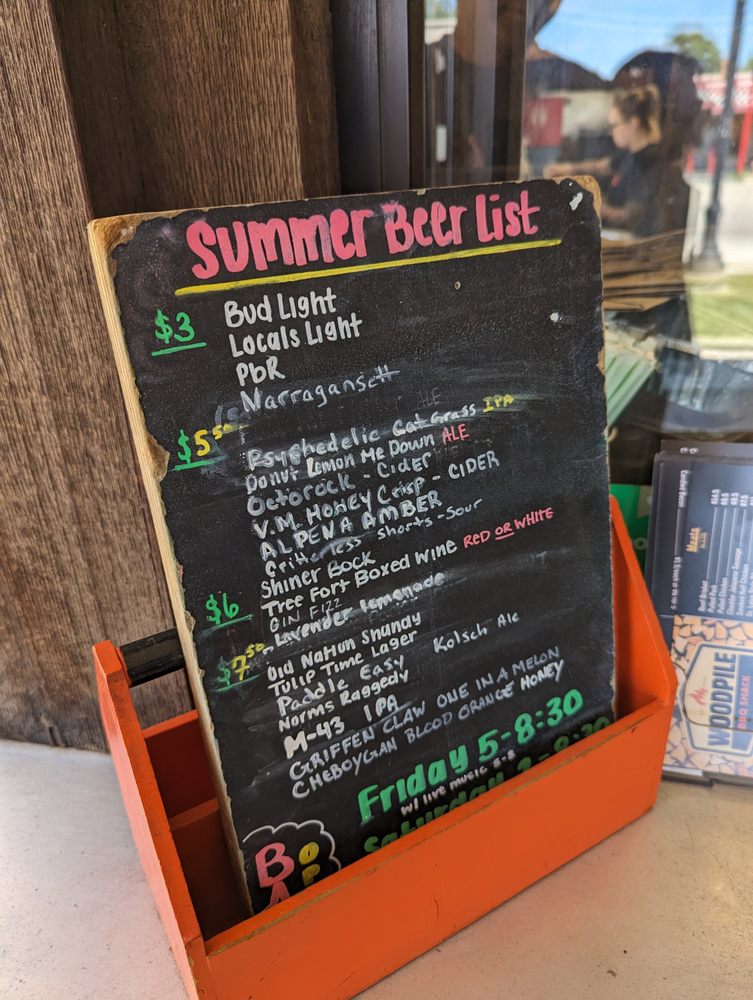 Summer Beer List
$3 Bud Light
Locals Light
PbR
Narragansett
ALE
$5.50 Psychedelic Cat Grass IPA
Donut Lemon Me Down ALE
Octorock - Cider
V.M. Honey Crisp - CIDER
ALPENA AMBER
Critterless shorts - Sour
Shiner Bock
$6 Tree Fort Boxed Wine RED OR WHITE
GIN FIZZ
- Lavender lemonade
$7.50 Old Nation Shandy
Tulip Time Lager
Paddle Easy Kolsch Ale
Norms Raggedy
M-43 IPA
GRIFFEN CLAW ONE IN A MELON
CHEBOYGAN BLOOD ORANGE HONEY
Friday 5-8:30
w/ live music 5-8
Saturday 2-8:30
Meats
WOODPILE
BBQ SHACK